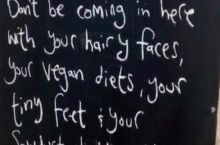 Don't be coming in here
with your hairy faces,
your vegan diets, your
tiny feet & your